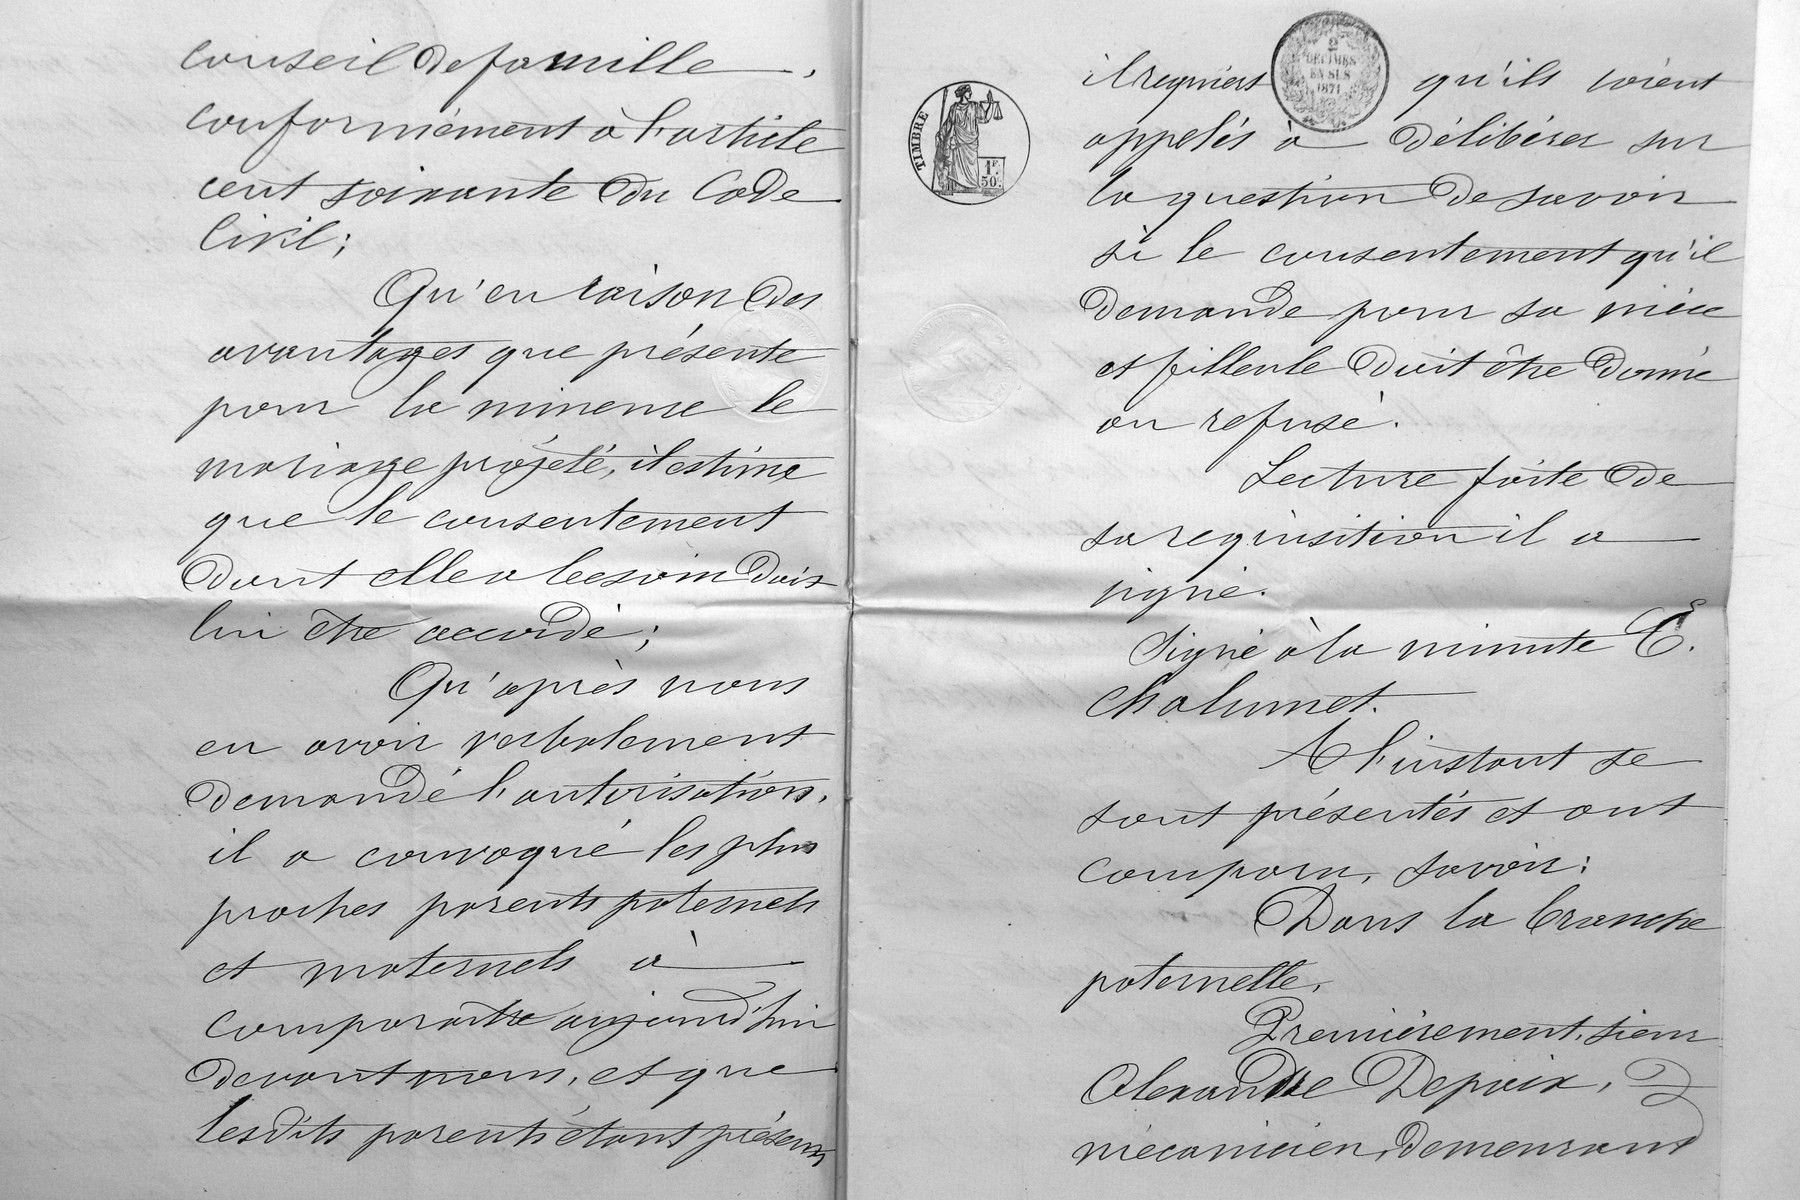 conseil de famille,
conformément à l'article
cent soixante du Code
Civil;
Qu'en raison des
avantages que présente
pour la mineure le
mariage projeté, il estime
que le consentement
dont elle a besoin doit
lui être accordé;
Qu'après nous
en avoir verbalement
demandé l'autorisation,
il a convoqué les plus
proches parents paternels
et maternels à
comparaître aujourd'hui
devant nous, et que
lesdits parents étant présents
TIMBRE
1F.
50c.
2
DECIMES
EN SUS
1871
il requiert qu'ils soient
appelés à délibérer sur
la question de savoir
si le consentement qu'il
demande pour sa nièce
et filleule doit être donné
ou refusé.
Lecture faite de
sa requisition il a
signé.
Signé à la minute E.
Chalumet.
A l'instant se
sont présentés et ont
comparu, savoir:
Dans la branche
paternelle.
Premièrement, sieur
Alexandre Depoix,
mécanicien, demeurant